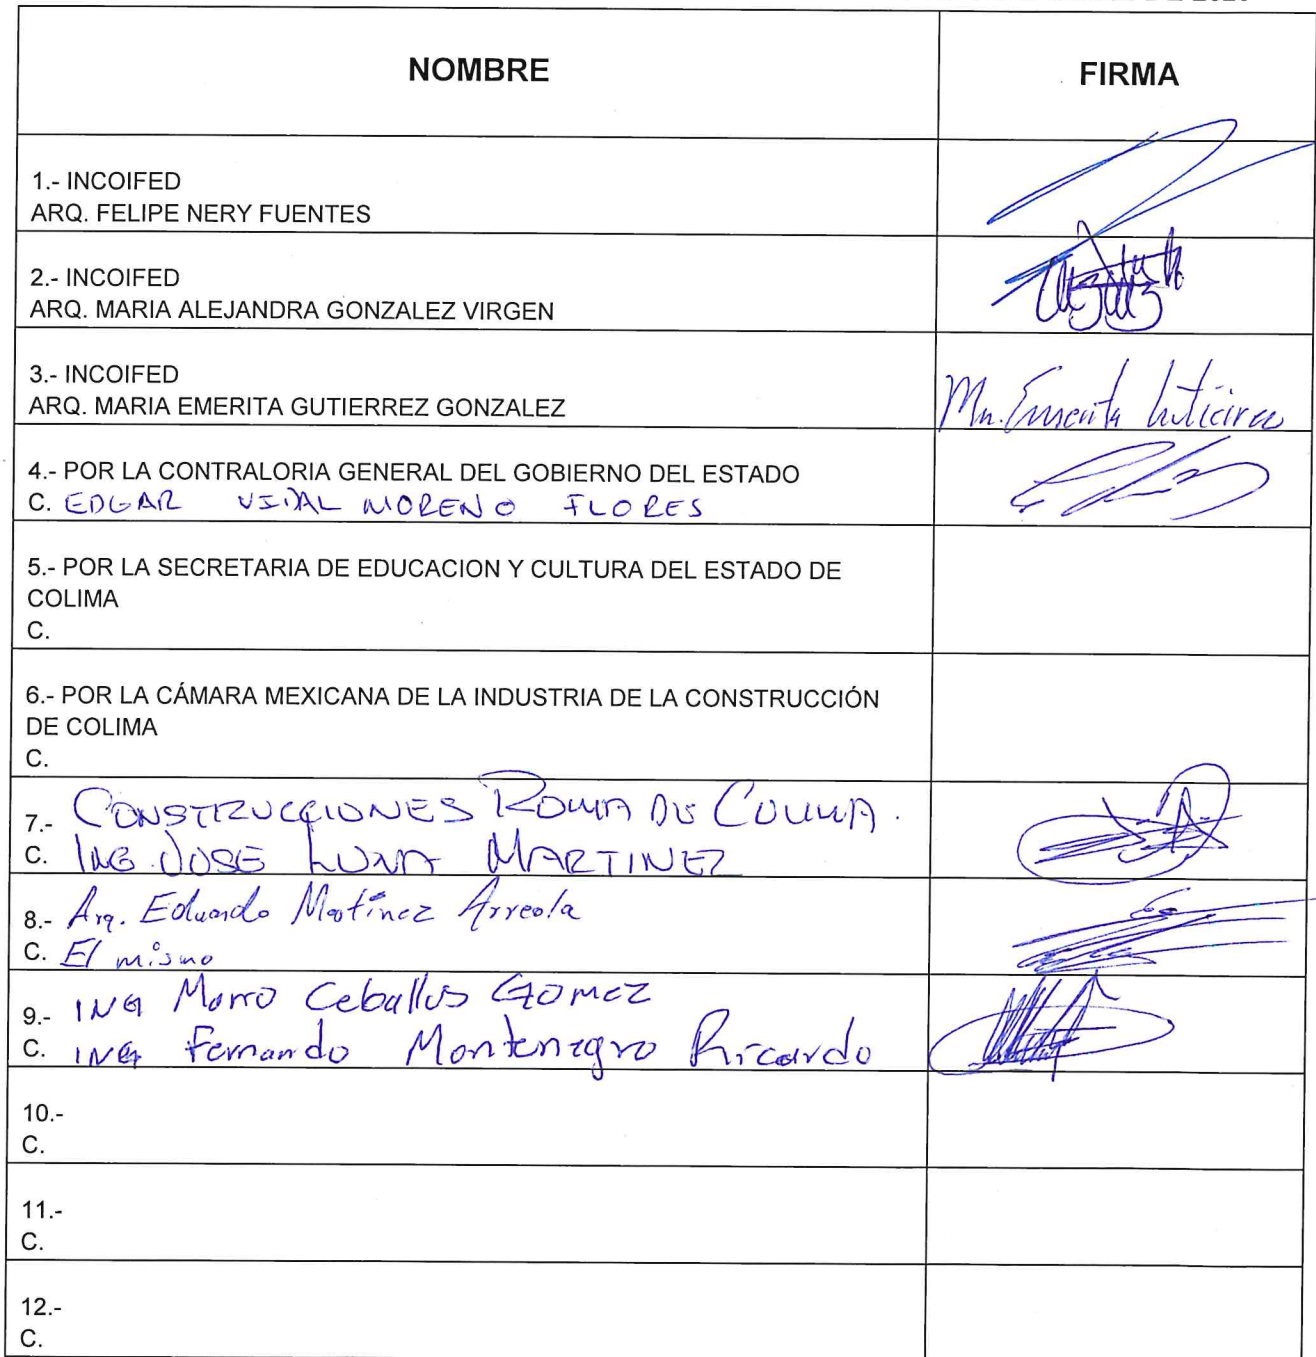 NOMBRE
FIRMA
1.- INCOIFED
ARQ. FELIPE NERY FUENTES
2.- INCOIFED
ARQ. MARIA ALEJANDRA GONZALEZ VIRGEN
3.- INCOIFED
ARQ. MARIA EMERITA GUTIERREZ GONZALEZ
Ma. Emerita Gutierrez
4.- POR LA CONTRALORIA GENERAL DEL GOBIERNO DEL ESTADO
C. EDGAR VIDAL MORENO FLORES
5.- POR LA SECRETARIA DE EDUCACION Y CULTURA DEL ESTADO DE
COLIMA
C.
6.- POR LA CÁMARA MEXICANA DE LA INDUSTRIA DE LA CONSTRUCCIÓN
DE COLIMA
C.
7.- CONSTRUCCIONES ROMA DE COLIMA.
C. ING. JOSE LUNA MARTINEZ
8.- Arq. Eduardo Martínez Arreola
C. El mismo
9.- ING Marco Ceballos Gomez
C. ING Fernando Montenegro Ricardo
10.-
C.
11.-
C.
12.-
C.